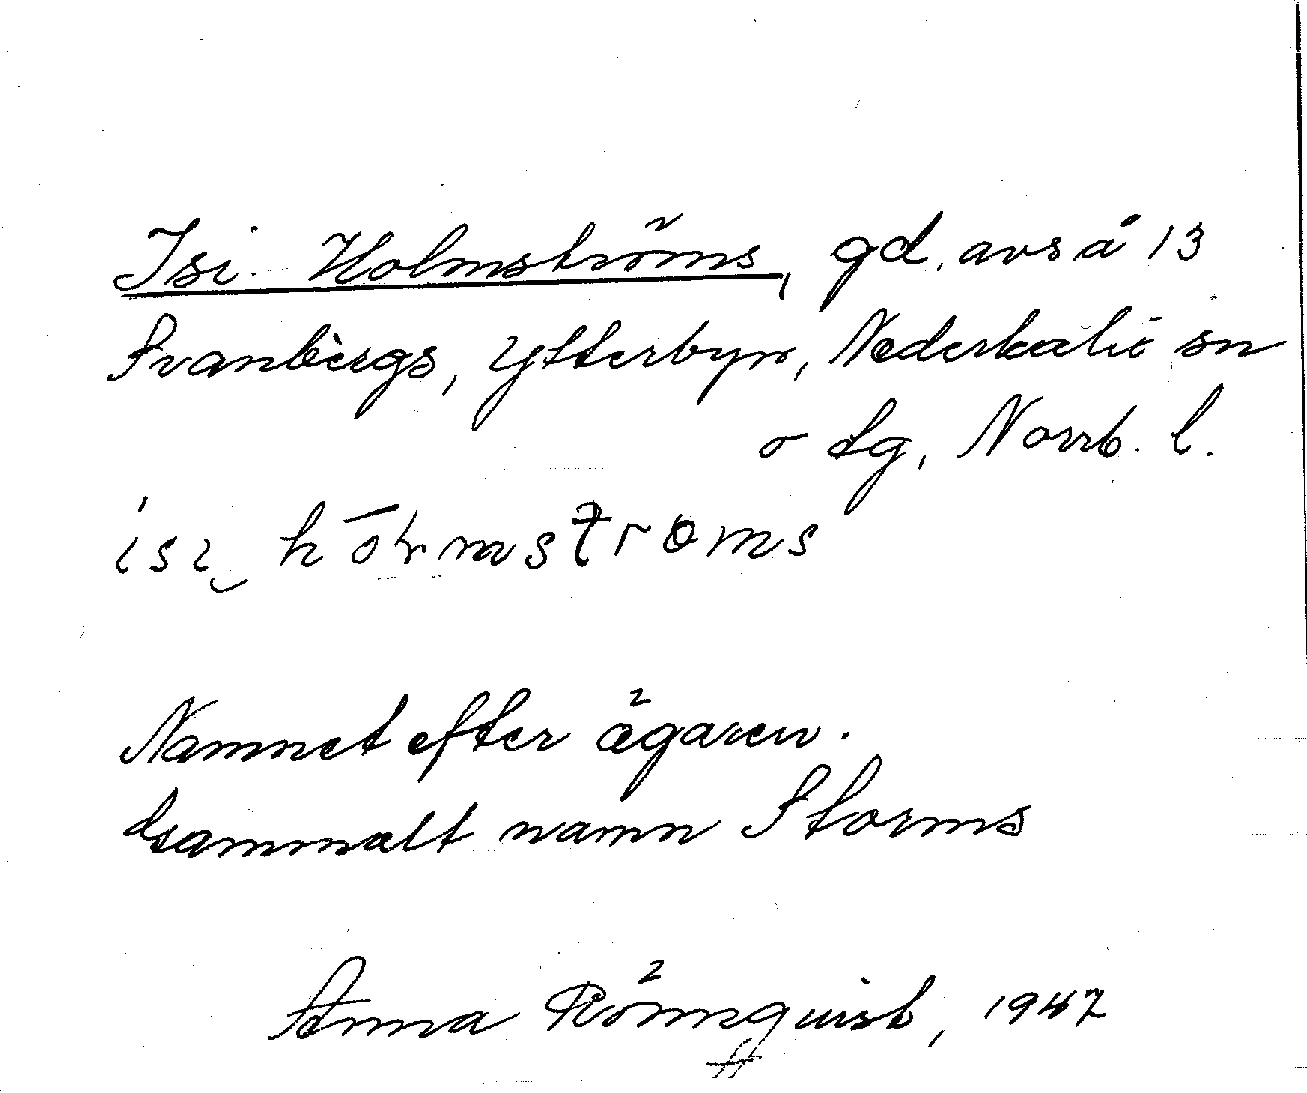 Isi Holmströms, gd, avs å 13
Svanbergs, Ytterbyn, Nederkalix sn
o tg, Norrb. l.
isi hōlmstroms
Namnet efter ägaren.
Gammalt namn Storms
Anna Rönnquist, 1947